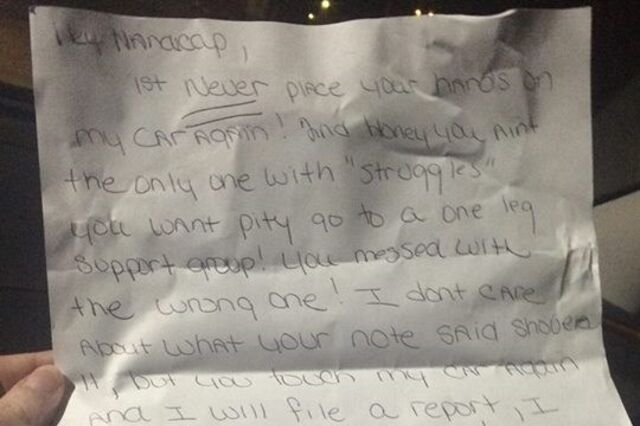 Hey Handicap,
1st Never place your hands on
my car again! 2nd Honey you aint
the only one with "struggles"
you want pity go to a one leg
support group! You messed with
the wrong one! I dont care
About what your note said shove
it, but you touch my car again
and I will file a report, I